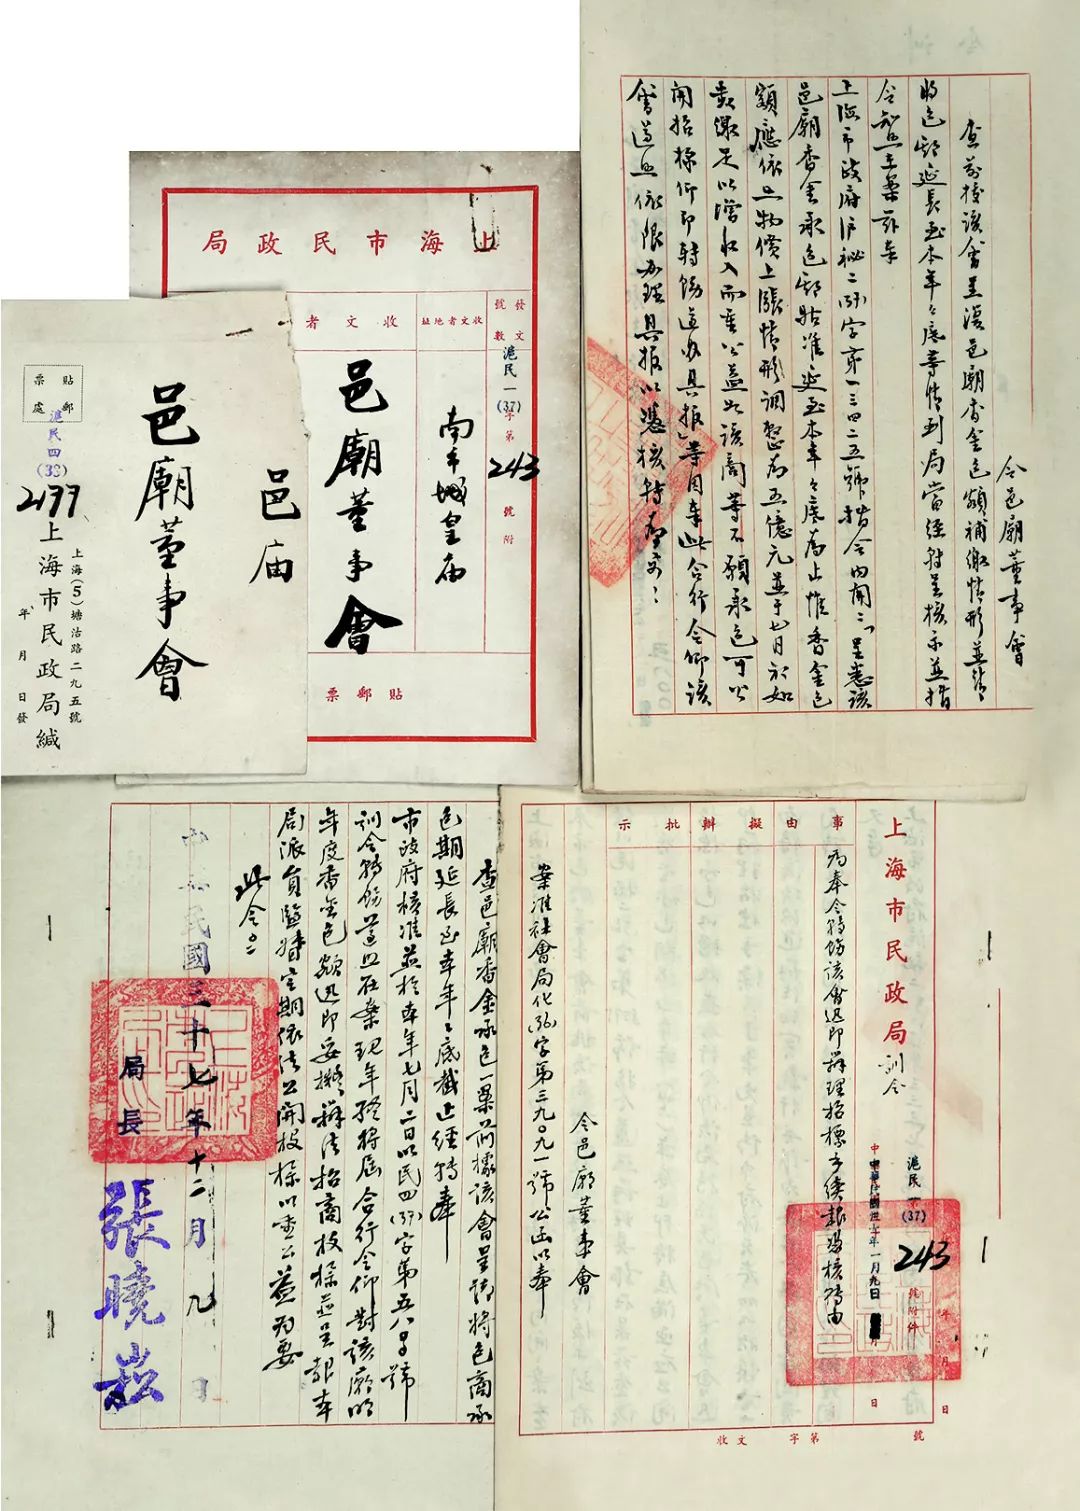 上海市民政局
發文號數
滬民一
(37)
字第
243
號附
收文者地址
南市城皇庙
收文者
邑廟董事會
貼郵票
貼郵票處
滬民四
(38)
2177
邑廟董事會
邑庙
上海(5)塘沽路二九五號
上海市民政局緘
年 月 日發
令邑廟董事會
查前據該會呈復邑廟香金包額補繳情形並請
將包期延長至本年年底等情到局當經轉呈核示並指
令知照在案茲奉
上海市政府沪秘二(37)字第一三四二五號指令内開「呈悉該
邑廟香金承包期姑准延至本年年底為止惟香金包
額應依照物價上漲情形調整為五億元並于七月於如
數繳足以增收入而重公益如該商等不願承包可公
開招標仰即轉飭遵办具报」等因奉此合行令仰該
會遵照依限办理具报以憑核轉為要
上海市民政局
訓令
事由
擬辦
批示
滬民
(37)
243
號附件
一月九日
為奉令轉飭該會迅即辦理招標手續報憑核轉由
令邑廟董事會
案准社會局化(36)字第三九〇九一號公函以奉
收文 字第 號
年 月 日
查邑廟香金承包一案前據該會呈請將包商承
包期延長至本年年底截止經轉奉
市政府核准並於本年七月二日以民四(37)字第五八〇号號
訓令轉飭遵照在案現年終将屆合行令仰對該廟明
年度香金包額迅即妥擬辦法招商投標並呈報本
局派員監督定期依法公開投標以重公益為要
此令
中華民國三十七年十二月九日
局長
張曉崧